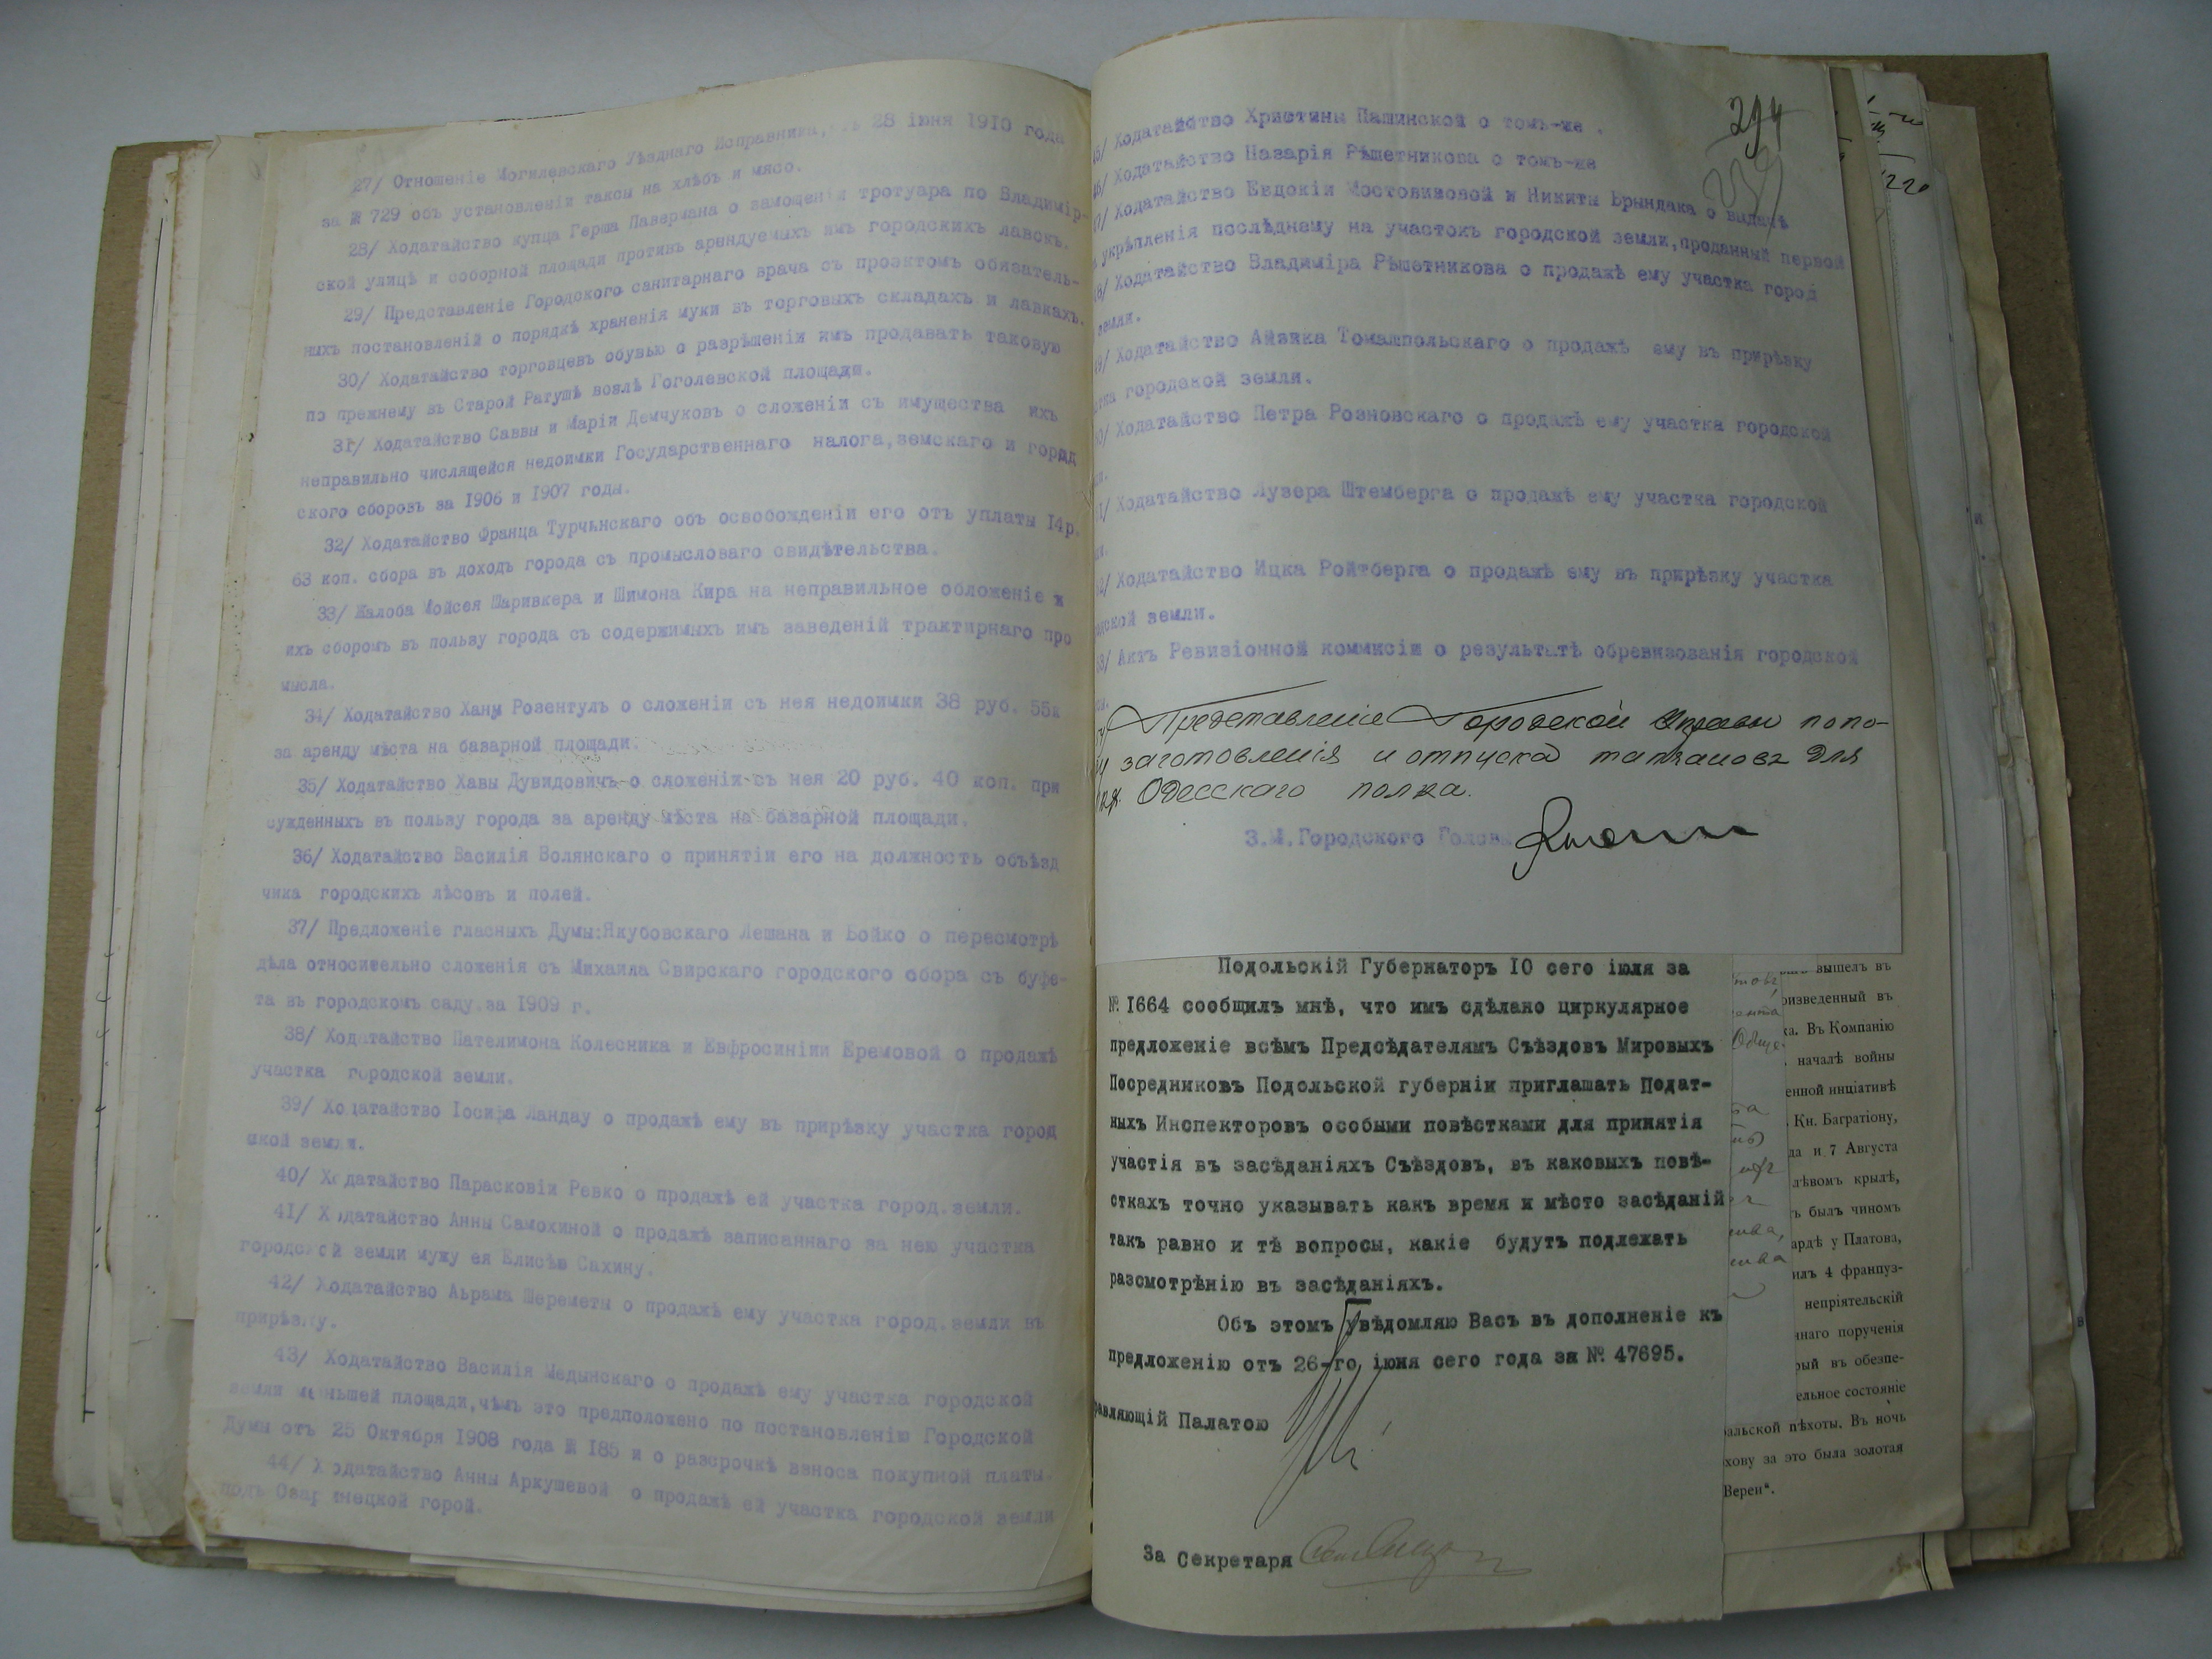 27/ Отношеніе Могилевскаго Уѣзднаго Исправника, 28 іюня 1910 года
за № 729 объ установленіи таксы на хлѣбъ и мясо.
28/ Ходатайство купца Герша Павермана о замощеніи тротуара по Владимір-
ской улицѣ и соборной площади противъ арендуемыхъ имъ городскихъ лавокъ.
29/ Представленіе Городского санитарнаго врача съ проэктомъ обязатель-
ныхъ постановленій о порядкѣ храненія муки въ торговыхъ складахъ и лавкахъ.
30/ Ходатайство торговцевъ обувью о разрѣшеніи имъ продавать таковую
по прежнему въ Старой Ратушѣ возлѣ Гоголевской площади.
31/ Ходатайство Саввы и Маріи Демчуковъ о сложеніи съ имущества ихъ
неправильно числящейся недоимки Государственнаго налога, земскаго и город
ского сборовъ за 1906 и 1907 годы.
32/ Ходатайство Франца Турчынскаго объ освобожденіи его отъ уплаты 14р.
63 коп. сбора въ доходъ города съ промысловаго свидѣтельства.
33/ Жалоба Мойсея Шаривкера и Шимона Кира на неправильное обложеніе
ихъ сборомъ въ пользу города съ содержимыхъ имъ заведеній трактирнаго про
мысла.
34/ Ходатайство Ханы Розентулъ о сложеніи съ нея недоимки 38 руб. 55к
за аренду мѣста на базарной площади.
35/ Ходатайство Хавы Дувидовичъ о сложеніи съ нея 20 руб. 40 коп. при
сужденныхъ въ пользу города за аренду мѣста на базарной площади.
36/ Ходатайство Василія Волянскаго о принятіи его на должность объѣзд
чика городскихъ лѣсовъ и полей.
37/ Предложеніе гласныхъ Думы:Якубовскаго Лешана и Бойко о пересмотрѣ
дѣла относительно сложенія съ Михаила Свирскаго городского сбора съ буфе-
та въ городскомъ саду.за 1909 г.
38/ Ходатайство Пателимона Колесника и Евфросиніи Еремовой о продажѣ
участка городской земли.
39/ Ходатайство Іосифа Ландау о продажѣ ему въ прирѣзку участка город
ской земли.
40/ Ходатайство Парасковіи Ревко о продажѣ ей участка город.земли.
41/ Ходатайство Анны Самохиной о продажѣ записаннаго за нею участка
городской земли мужу ея Елисѣю Сахину.
42/ Ходатайство Аьрама Шереметы о продажѣ ему участка город.земли въ
прирѣзку.
43/ Ходатайство Василія Медынскаго о продажѣ ему участка городской
земли меньшей площади,чѣмъ это предположено по постановленію Городской
Думы отъ 25 Октября 1908 года № 185 и о разсрочкѣ взноса покупной платы.
44/ Ходатайство Анны Аркушевой о продажѣ ей участка городской земли
подъ Озаринецкой горой.
294
45/ Ходатайство Христины Пашинской о томъ-же .
46/ Ходатайство Назарія Рѣшетникова о томъ-же
47/ Ходатайство Евдокіи Мостовивовой и Никиты Брындака о выдачѣ
укрѣпленія послѣднему на участокъ городской земли,проданный первой
48/ Ходатайство Владиміра Рѣшетникова о продажѣ ему участка город
земли.
49/ Ходатайство Айзика Томашпольскаго о продажѣ ему въ прирѣзку
городской земли.
50/ Ходатайство Петра Розновскаго о продажѣ ему участка городской
51/ Ходатайство Лузера Штемберга о продажѣ ему участка городской
52/ Ходатайство Ицка Ройтберга о продажѣ ему въ прирѣзку участка
земли.
53/ Актъ Ревизіонной коммисіи о результатѣ обревизованія городской
Представленіе Городской Управы по по-
заготовленія и отпуска тапчановъ для
Одесскаго полка.
З.М.Городского Головы
Подольскій Губернаторъ 10 сего іюля за
№ 1664 сообщилъ мнѣ, что имъ сдѣлано циркулярное
предложеніе всѣмъ Предсѣдателямъ Съѣздовъ Мировыхъ
Посредниковъ Подольской губерніи приглашать Подат-
ныхъ Инспекторовъ особыми повѣстками для принятія
участія въ засѣданіяхъ Съѣздовъ, въ каковыхъ повѣ-
сткахъ точно указывать какъ время и мѣсто засѣданій
такъ равно и тѣ вопросы, какіе будутъ подлежать
разсмотрѣнію въ засѣданіяхъ.
Объ этомъ увѣдомляю Васъ въ дополненіе къ
предложенію отъ 26-го іюня сего года за № 47695.
равляющій Палатою
За Секретаря
вышелъ въ
оизведенный въ
ка. Въ Компанію
началѣ войны
енной инціативѣ
Кн. Багратіону,
да и 7 Августа
лѣвомъ крылѣ,
ъ былъ чиномъ
ардѣ у Платова,
илъ 4 француз-
непріятельскій
ннаго порученія
рый въ обезпе-
ельное состояніе
альской пѣхоты. Въ ночь
хову за это была золотая
Вереи".